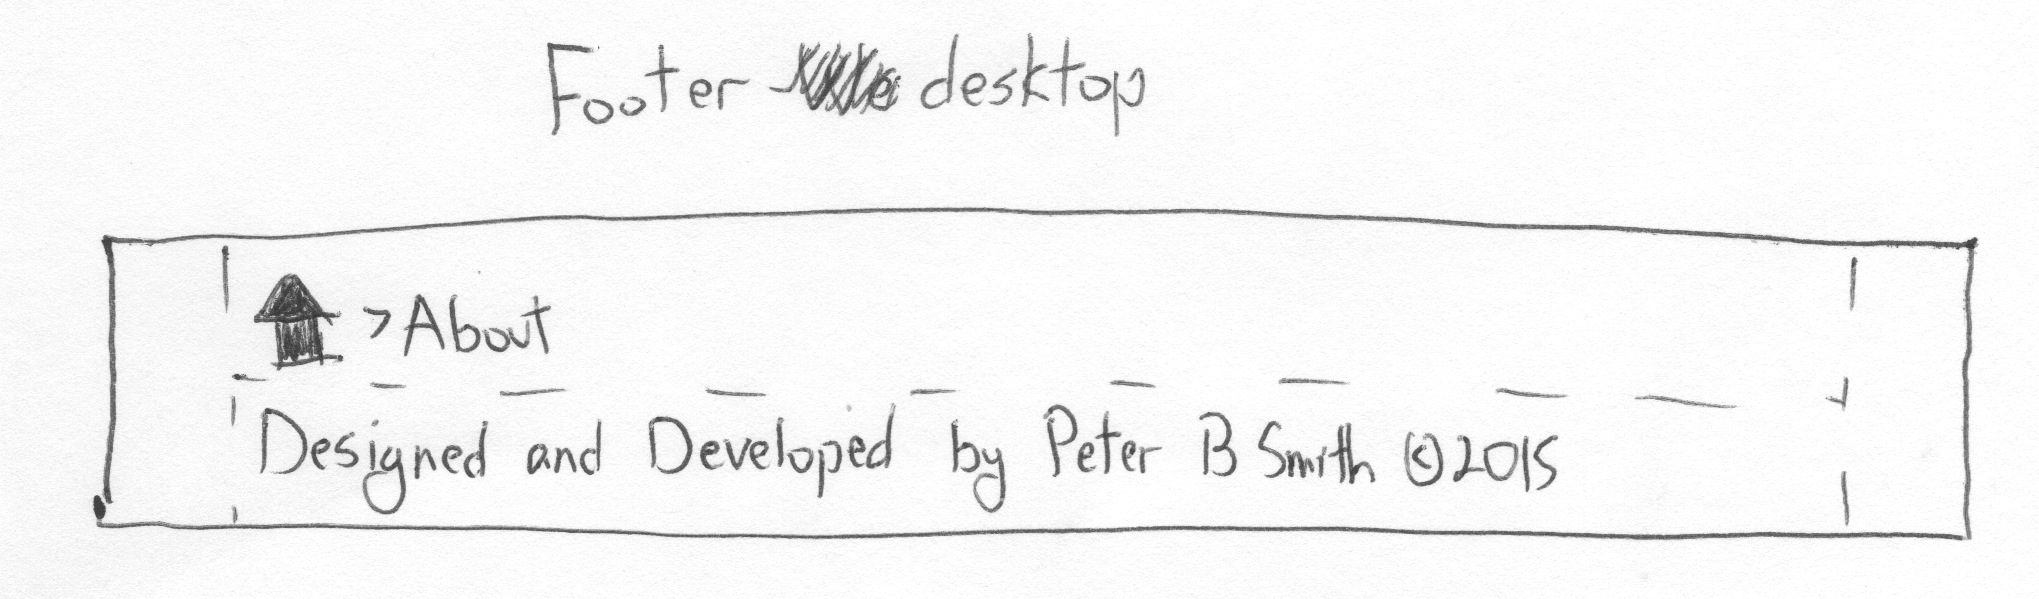 Footer desktop
> About
Designed and Developed by Peter B Smith © 2015